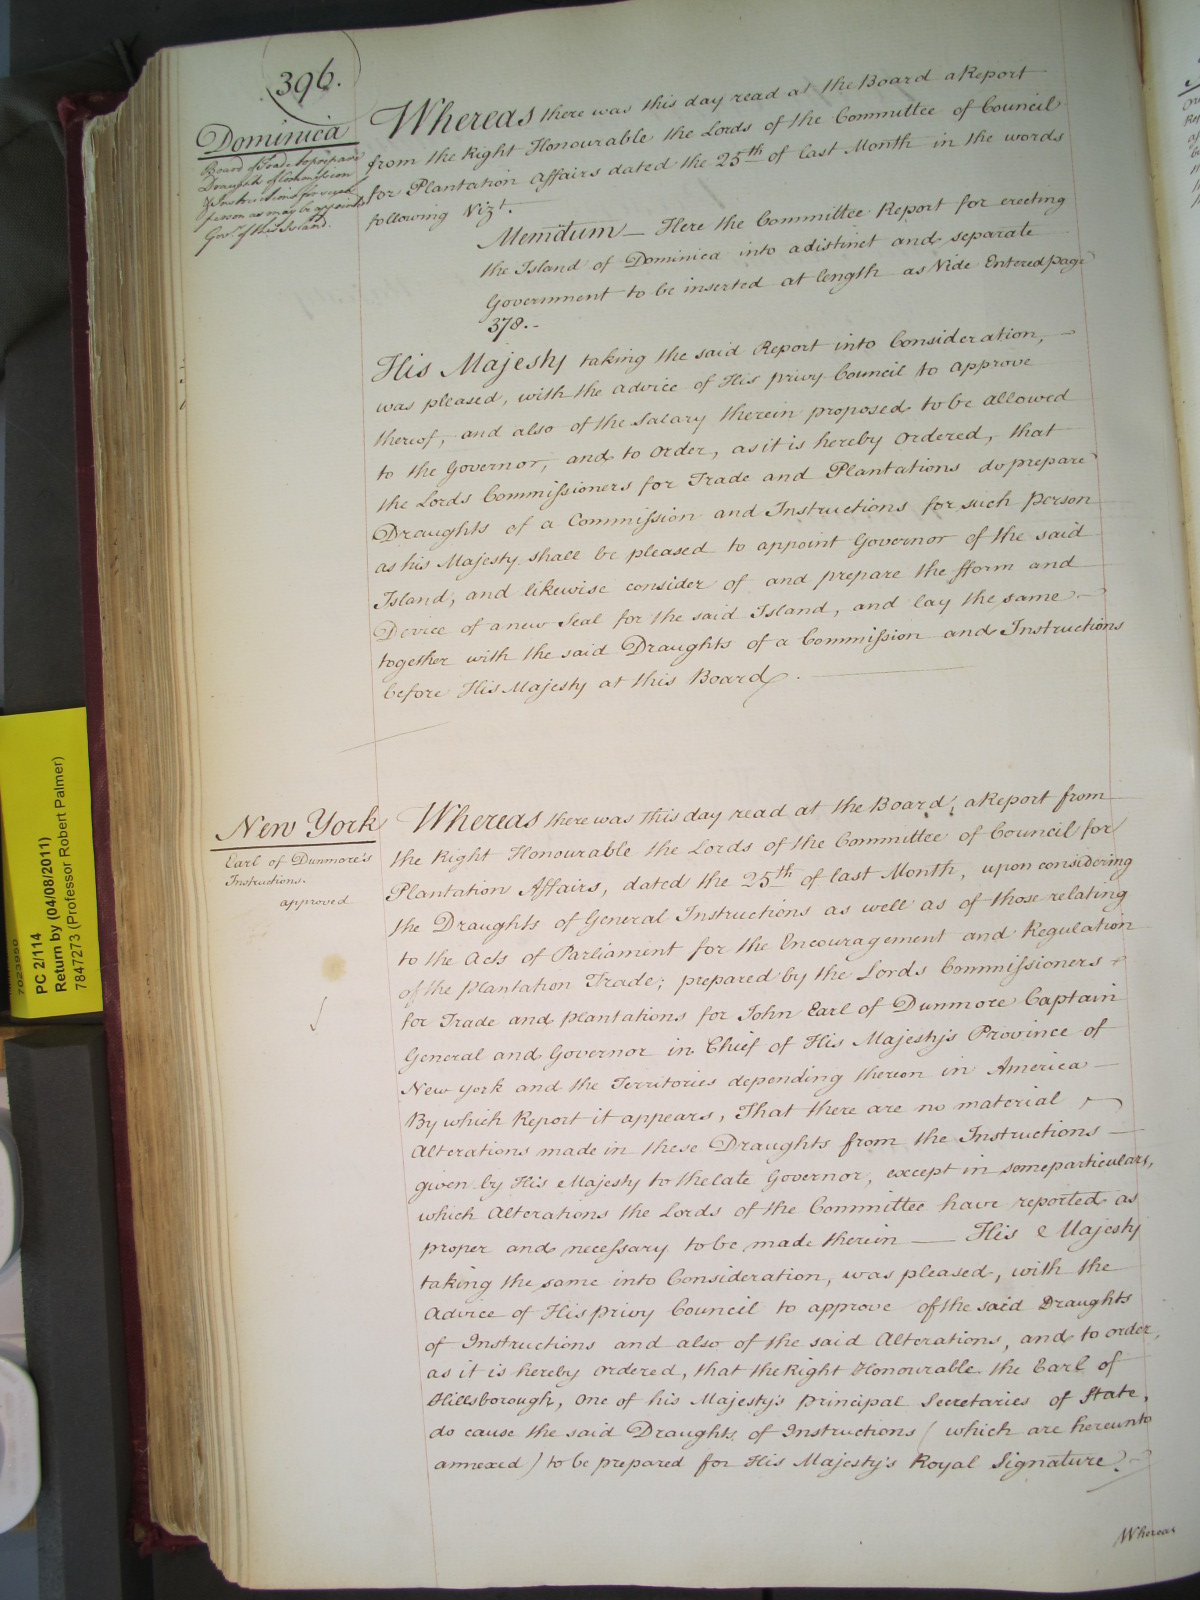 396.
Dominica
Board of Trade to prepare
Draught of Commission
& Instructions for such
person as may be appointed
Govr. of this Island.
Whereas there was this day read at the Board a Report
from the Right Honourable the Lords of the Committee of Council
for Plantation Affairs dated the 25th of last Month in the words
following Vizt.
Memdum — Here the Committee Report for erecting
the Island of Dominica into a distinct and separate
Government to be inserted at length as Vide Entered page
378.-
His Majesty taking the said Report into Consideration, —
was pleased, with the advice of His privy Council to approve
thereof, and also of the Salary therein proposed to be allowed
to the Governor, and to order, as it is hereby ordered, that
the Lords Commissioners for Trade and Plantations do prepare
Draughts of a Commission and Instructions for such Person
as his Majesty shall be pleased to appoint Governor of the said
Island, and likewise consider of and prepare the fform and
Device of a new Seal for the said Island, and lay the same —
together with the said Draughts of a Commission and Instructions
before His Majesty at this Board.
New York
Earl of Dunmore's
Instructions.
approved
Whereas there was this day read at the Board, a Report from
the Right Honourable the Lords of the Committee of Council for
Plantation Affairs, dated the 25th of last Month, upon considering
the Draughts of General Instructions as well as of those relating
to the Acts of Parliament for the Encouragement and Regulation
of the Plantation Trade; prepared by the Lords Commissioners
for Trade and plantations for John Earl of Dunmore Captain
General and Governor in Chief of His Majesty's Province of
New York and the Territories depending thereon in America —
By which Report it appears, That there are no material
Alterations made in these Draughts from the Instructions —
given by His Majesty to the late Governor, except in some particulars,
which Alterations the Lords of the Committee have reported as
proper and necessary to be made therein — His Majesty
taking the same into Consideration, was pleased, with the
Advice of His privy Council to approve of the said Draughts
of Instructions and also of the said Alterations, and to order,
as it is hereby ordered, that the Right Honourable the Earl of
Hillsborough, one of his Majesty's Principal Secretaries of State,
do cause the said Draughts of Instructions (which are hereunto
annexed) to be prepared for His Majesty's Royal Signature. —
Whereas
PC 2/114
Return by (04/08/2011)
7847273 (Professor Robert Palmer)